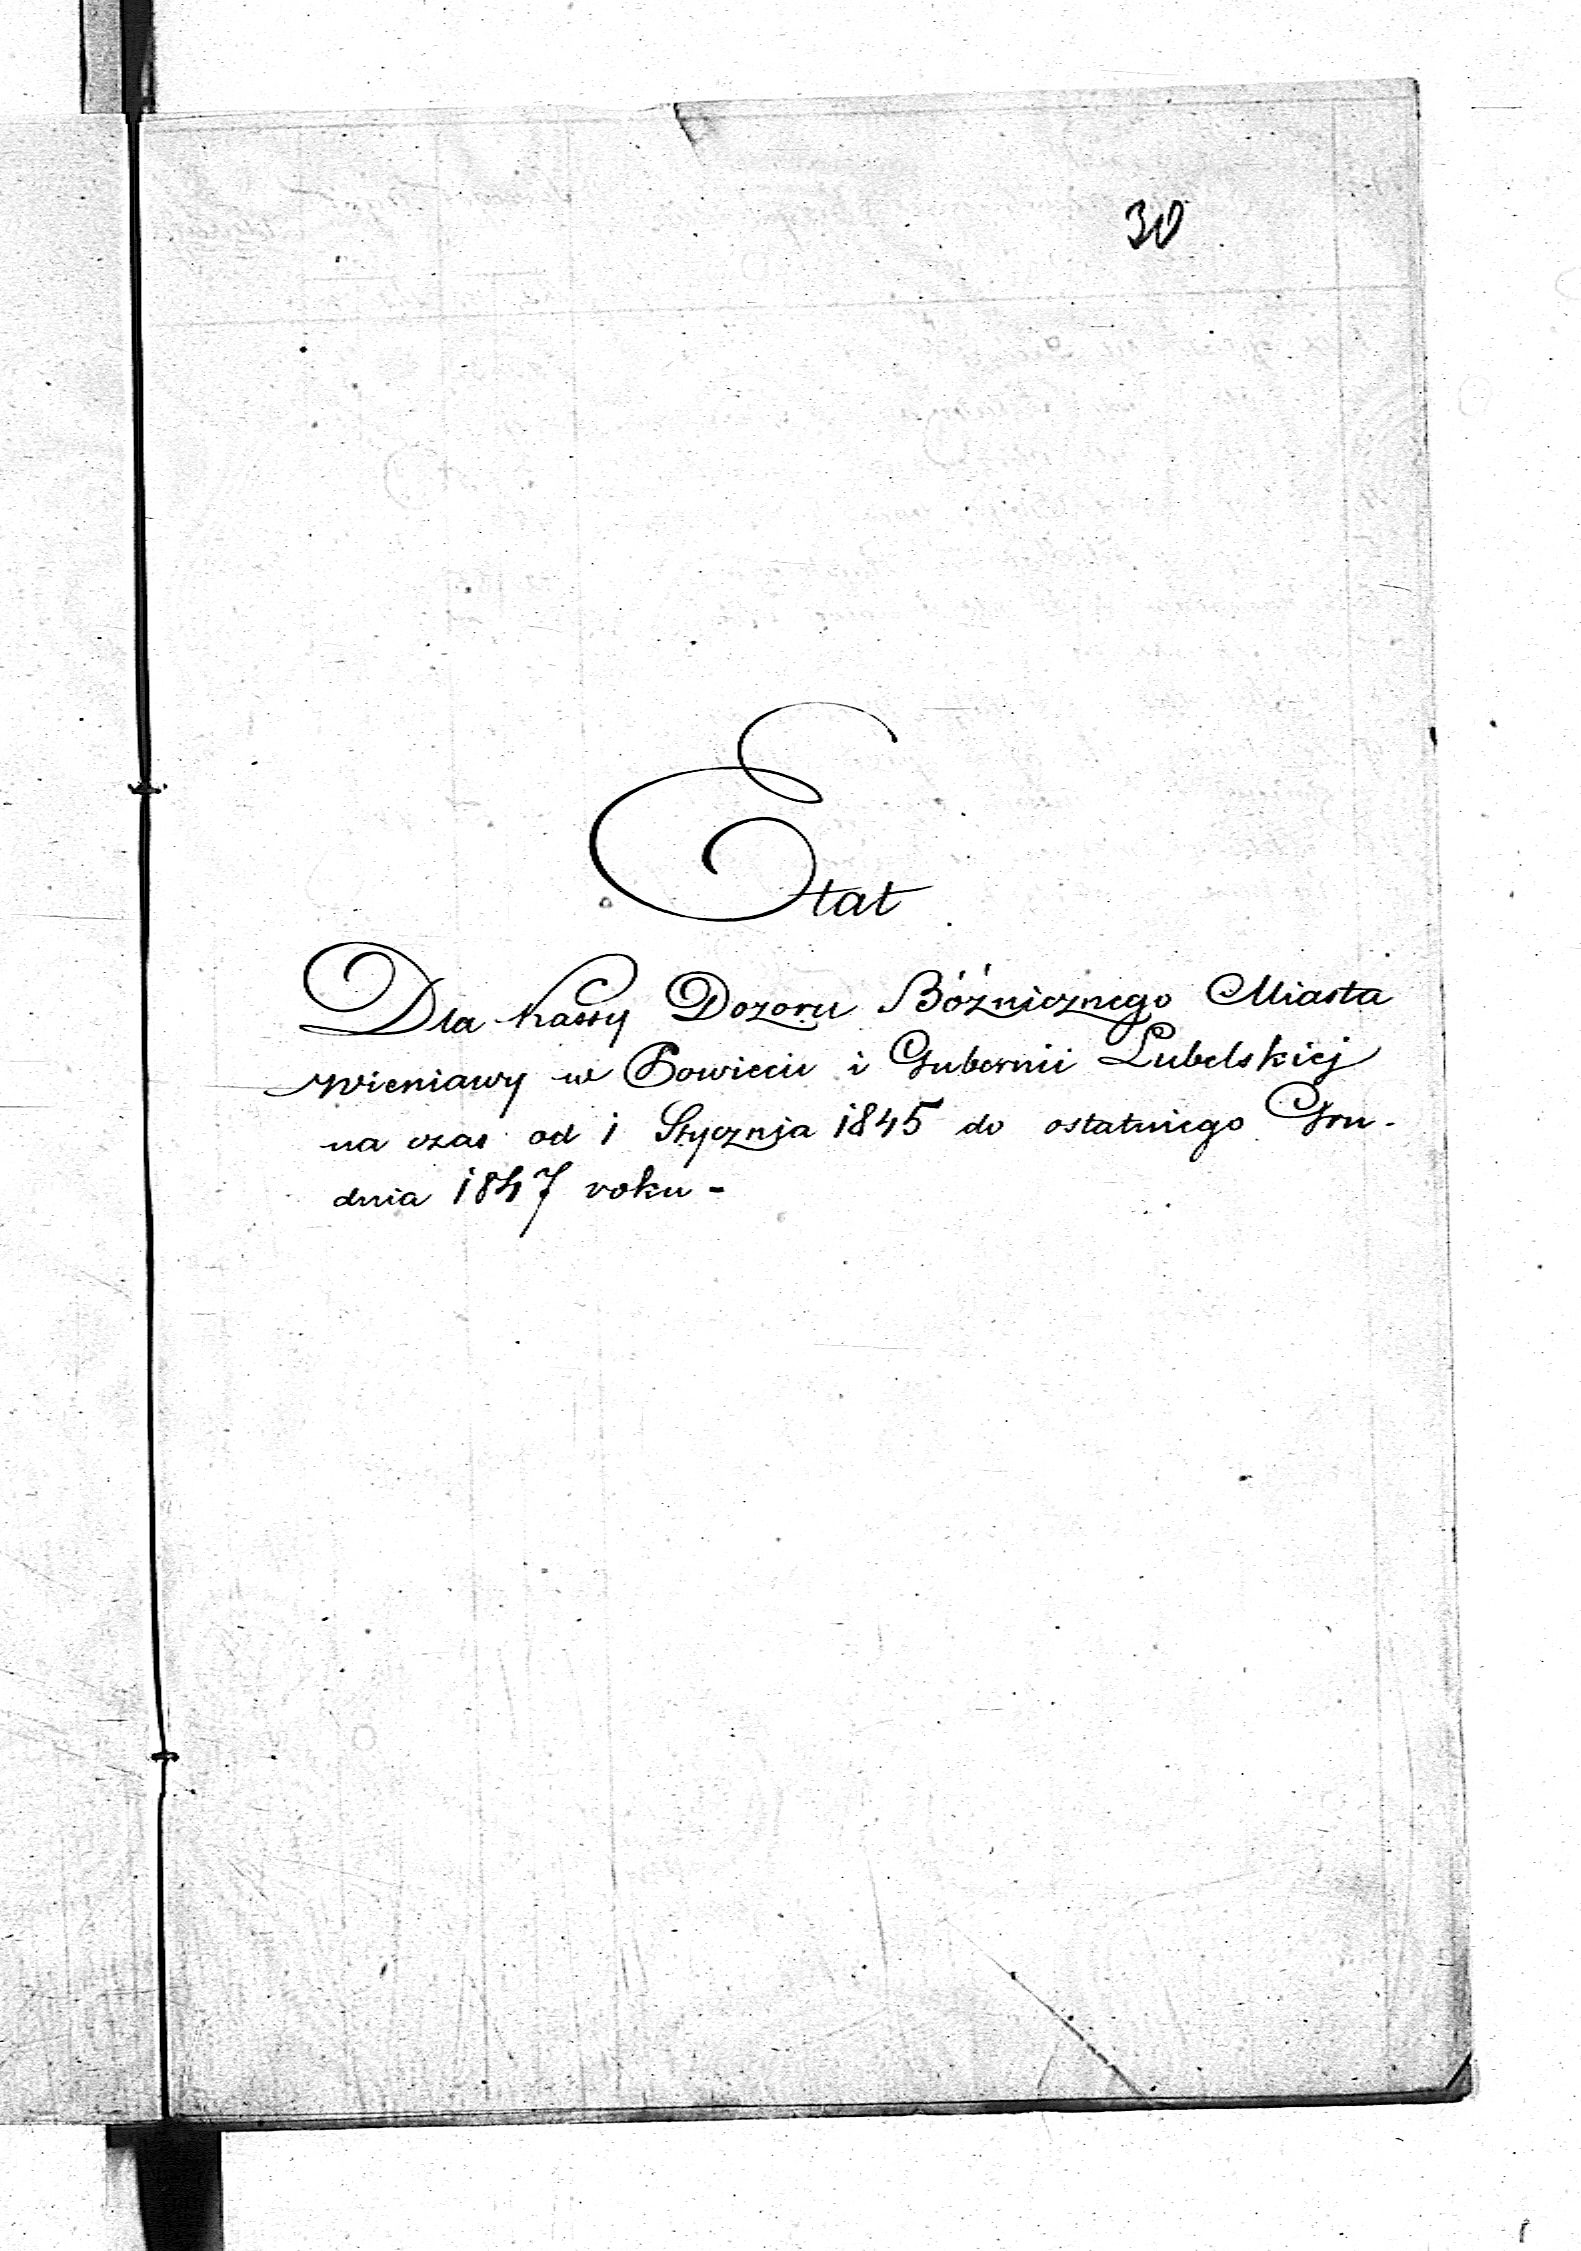 30
Etat
Dla Kassy Dozoru Bóźnicznego Miasta
Wieniawy w Powiecie i Gubernii Lubelskiej
na czas od 1 Stycznia 1845 do ostatniego Gru-
dnia 1847 roku -